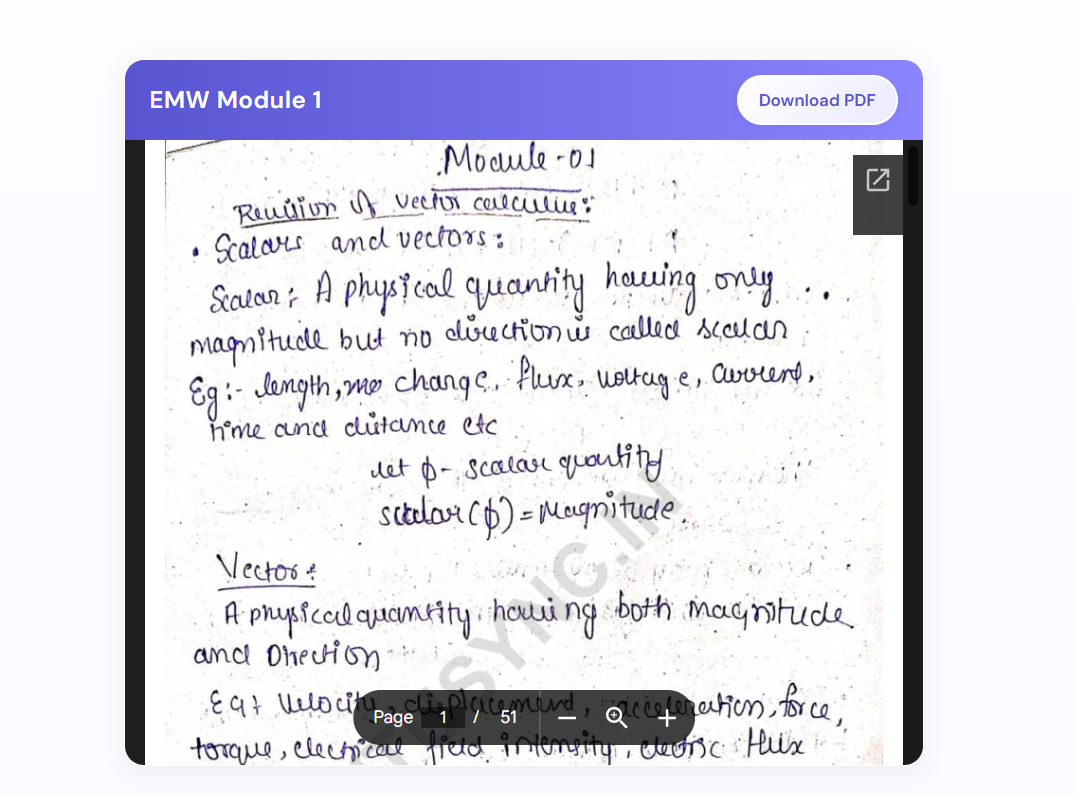 EMW Module 1
Download PDF
Module-01
Revision of vector calculus:
• Scalars and vectors:
Scalar: A physical quantity having only
magnitude but no direction is called scalar
Eg:- length, charge, flux, voltage, current,
time and distance etc
let ϕ- scalar quantity
scalar(ϕ) = Magnitude.
Vector:
A physical quantity having both magnitude
and Direction
Eg: Velocity, displacement, acceleration, force,
torque, electrical field intensity, electric flux
Page 1 / 51
SYNC.IN